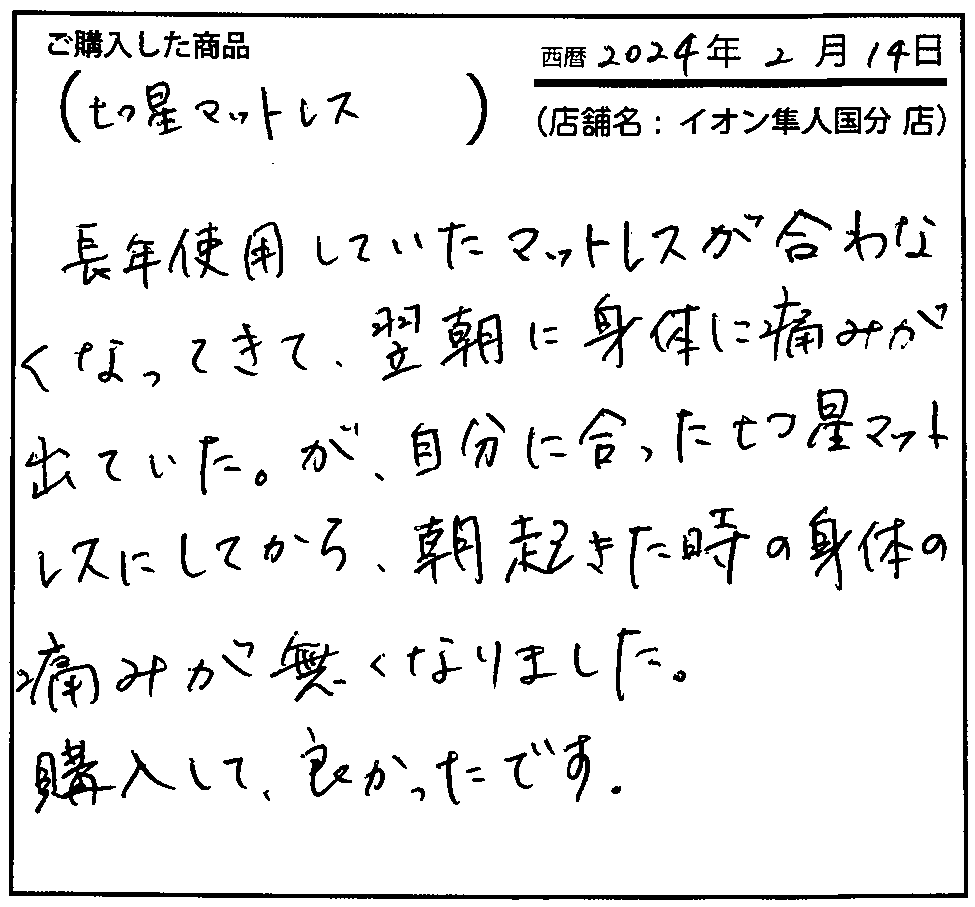 ご購入した商品
(七つ星マットレス)
西暦 2024年 2月14日
(店舗名:イオン隼人国分 店)
長年使用していたマットレスが合わな
くなってきて、翌朝に身体に痛みが
出ていた。が、自分に合った七つ星マット
レスにしてから、朝起きた時の身体の
痛みが無くなりました。
購入して、良かったです.